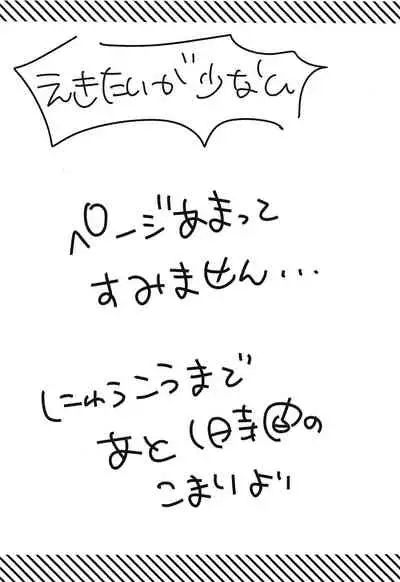 えきたいが少ない
ページあまって
すみません...
にゅうこうまで
あと1時間の
こまりより